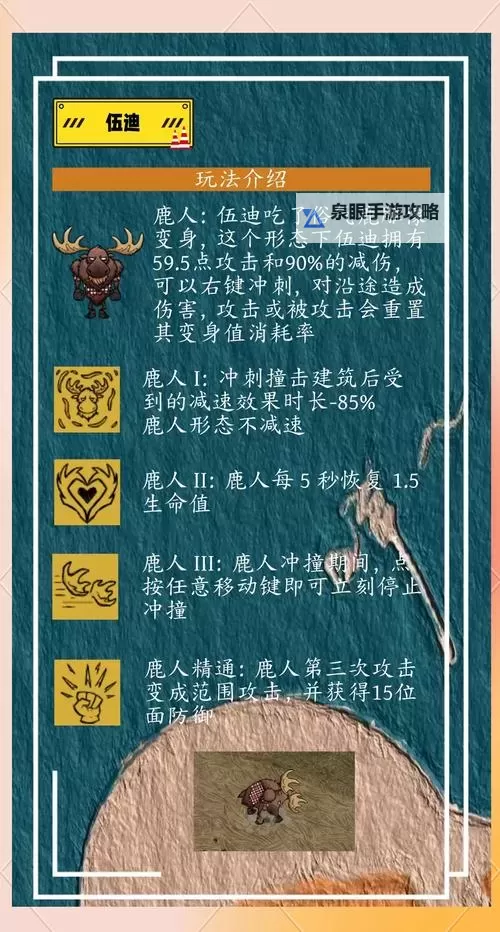 伍迪
玩法介绍
鹿人: 伍迪吃了
泉眼手游攻略
变身, 这个形态下伍迪拥有
59.5点攻击和90%的减伤,
可以右键冲刺, 对沿途造成
伤害, 攻击或被攻击会重置
其变身值消耗率
鹿人 I: 冲刺撞击建筑后受
到的减速效果时长-85%
鹿人形态不减速
鹿人 II: 鹿人每 5 秒恢复 1.5
生命值
鹿人 III: 鹿人冲撞期间, 点
按任意移动键即可立刻停止
冲撞
鹿人精通: 鹿人第三次攻击
变成范围攻击, 并获得15位
面防御